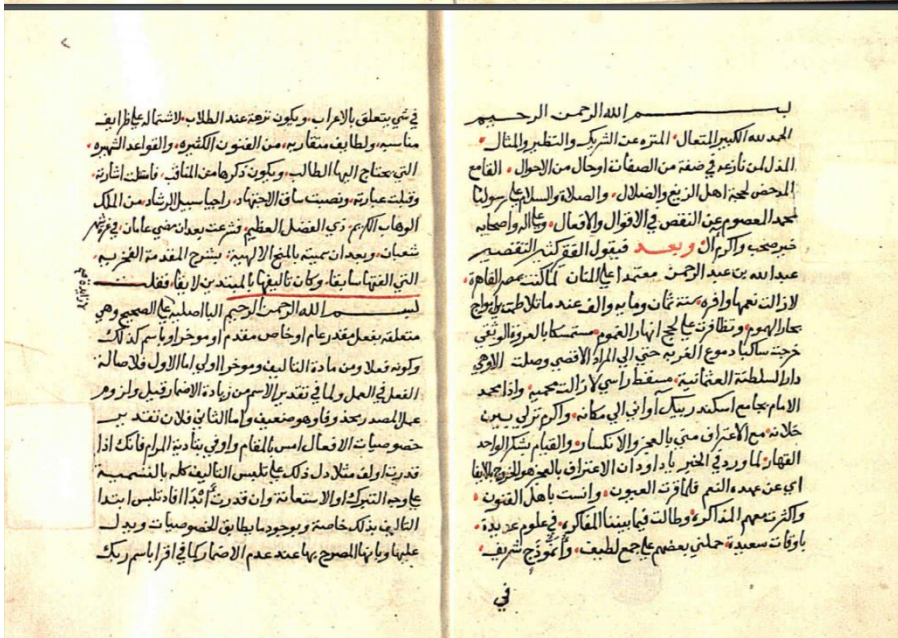 بسم الله الرحمن الرحيم
الحمد لله الكبير المتعال المنزه عن الشريك والنظير والمثال
المذل لمن نازعه في صفة من الصفات او حال من الاحوال القامع
المدحض لحجة اهل الزيغ والضلال والصلاة والسلام علي رسولنا
محمد المعصوم عن النقص في الاقوال والافعال وعلي اله واصحابه
خير صحب واكرم ال وبعد فيقول الفقر كثير التقصير
عبدالله بن عبد الرحمن معتمدا علي المنان لما كنت بمصر القاهرة
لازالت نعمها وافره سنة ثمان ومايه والف عندما تلاطمت بي امواج
بحار الهموم وتظافرت علي لجج انهار الغموم مستمسكا بالعروة الوثقي
خرجت ساكبا دموع الغربه حتي الي المراد الاقصي وصلت
دار السلطنة العثمانية مسقط راسي لازالت محميه واذا محمد
الامام بجامع اسكندر بيك آواني الي مكانه واكرم نزلي بين
خلانه مع الاعتراف مني بالعجز والانكسار والقيام بشكر الواحد
القهار لما ورد في الخبر يا داود ان الاعتراف بالعجز هو الخروج بالايفا
اي عن عهده النعم فلما قرت العيون وانست باهل الفنون
واكثرت معهم المذاكره وطالت فيما بيننا المفاكره في علوم عديدة
باوقات سعيدة حملني بعضهم علي جمع لطيف وأنموذج شريف
في
٢
في شي يتعلق بالاعراب ويكون نزهة عند الطلاب لاشتماله علي ظرايف
مناسبه ولطايف متقاربه من الفنون الكثيره والقواعد الشهيره
التي يحتاج اليها الطالب ويكون ذكرها من المناقب فامتثلت اشارته
وقبلت عبارته ونصبت ساق الاجتهاد راجيا سبيل الرشاد من الملك
الوهاب الكريم ذي الفضل العظيم فشرعت بعد ان مضي عامان في غرة شهر
شعبان وبعد ان سميته بالمنح الالهية بشرح المقدمة الفخريه
التي الفتها سابقا وكان تاليفها بالمبتدين لايقا فقلت
بسم الله الرحمن الرحيم البا اصلية علي الصحيح وهي
متعلقة بفعل مقدر عام او خاص مقدم او موخر او باسم كذلك
وكونه فعلا ومن مادة التاليف وموخرا اولي اما الاول فلاصالة
الفعل في العمل ولما في تقدير الاسم من زيادة الاضمار قيل ولزوم
عمل المصدر محذوفا وهو ضعيف واما الثاني فلان تقدير
خصوصيات الافعال امس بالمقام واوفي بتادية المرام فانك اذا
قدرت اولف مثلا دل ذلك علي تلبس التاليف كله بالتسمية
علي وجه التبرك او الاستعانة وان قدرت أبتدأ افاد تلبس ابتدا
التاليف بذلك خاصة وبوجود ما يطابق الخصوصيات ويدل
عليها وبانها المصرح بها عند عدم الاضمار كما في اقرا باسم ربك